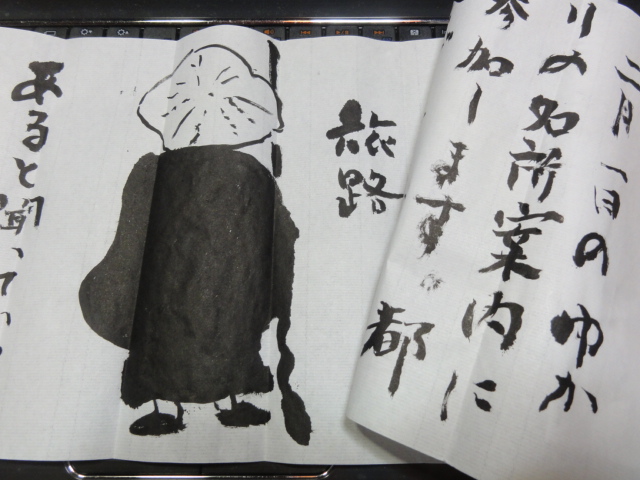 二月一日のゆか
りの名所案内に
参加します。都
旅路
あると聞いてい